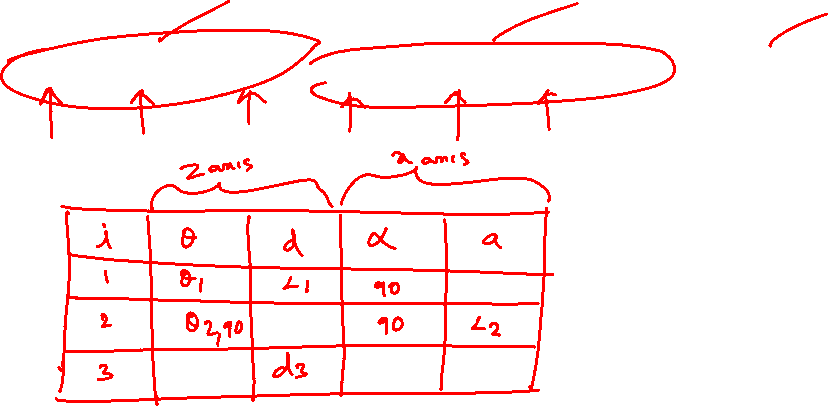 Z axis x axis
i θ d α a
1 θ1 L1 90
2 θ2,90 90 L2
3 d3